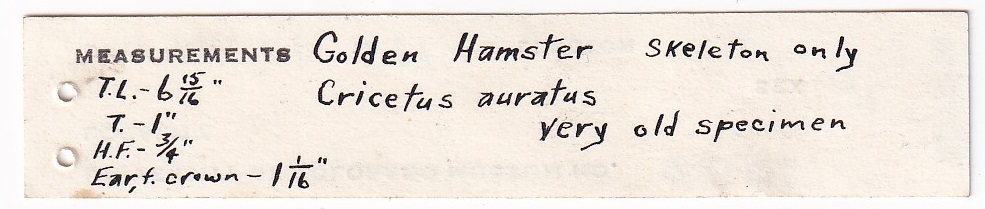 MEASUREMENTS Golden Hamster skeleton only
T.L.- 6 15/16"
Cricetus auratus
T. - 1"
very old specimen
H.F. - 3/4"
Ear, f. crown - 1 1/16"